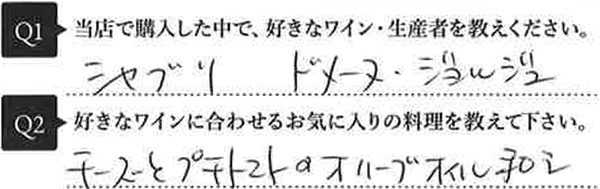 Q1 当店で購入した中で、好きなワイン・生産者を教えください。
シャブリ ドメーヌ・ジョルジュ
Q2 好きなワインに合わせるお気に入りの料理を教えて下さい。
チーズとプチトマトのオリーブオイル和え